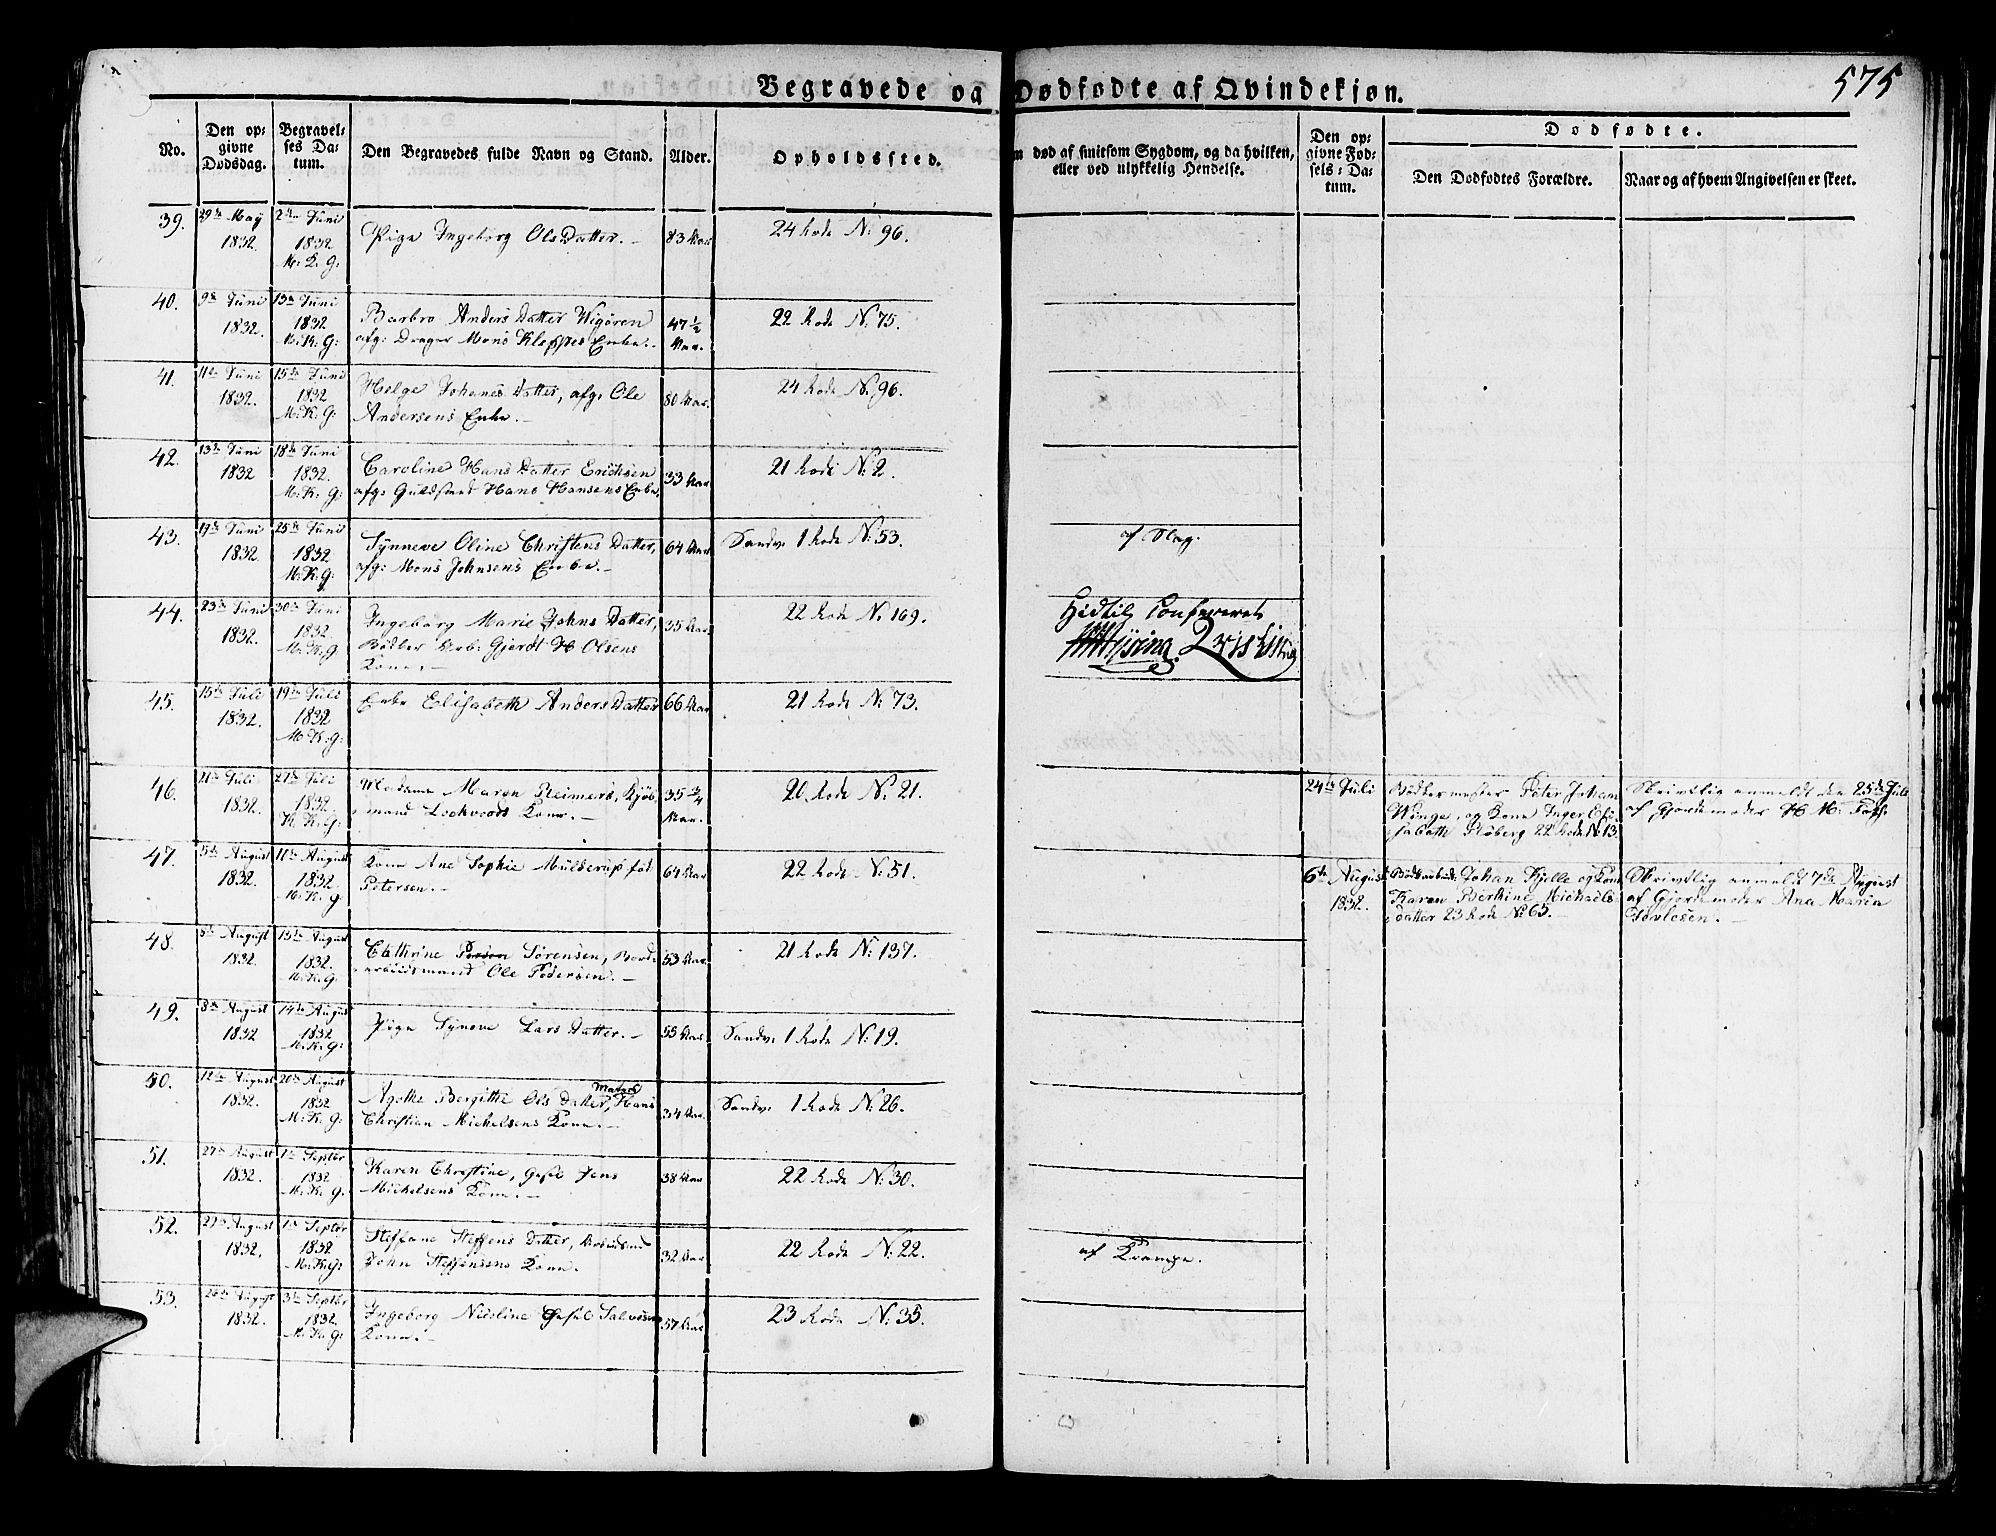 Begravede og Dødfødte af Qvindekjøn.
575
No.
Den op-
givne
Dødsdag.
Begravel-
ses Da-
tum.
Den Begravedes fulde Navn og Stand.
Alder.
Opholdssted.
død af smitsom Sygdom, og da hvilken,
eller ved ulykkelig Hendelse.
Den op-
givne Fød-
sels-Da-
tum.
Dødfødte.
Den Dødfødtes Forældre.
Naar og af hvem Angivelsen er skeet.
39.
29de May
1832.
2den Juni
1832
M. K. G:
Pige Ingeborg Ols Datter. –
83 Aar
24 Rode N: 96.
40.
9de Juni
1832.
13de Juni
1832
M: K: G:
Barbro Anders Datter Wigøren
afg: Drager Mons Kleppes Enke. –
47 ½
Aar.
22 Rode N: 75.
41.
11te Juni
1832.
15de Juni
1832
M: K: G:
Helge Johanes Datter, afg: Ole
Andersens Enke. –
80 Aar.
24 Rode N: 96.
42.
13de Juni
1832
18de Juni
1832.
M: K: G:
Caroline Hans Datter Erichsen
afg: Guldsmed Hans Hansens Enke,
33 Aar
21 Rode N: 2.
43.
19de Juni
1832.
25de Juni
1832
M: K: G:
Synneve Oline Christens Datter,
afg: Mons Johnsens Enke. –
64 Aar
Sandv: 1 Rode N: 53.
af Slag.
44.
23de Juni
1832.
30de Juni
1832
M: K: G
Ingeborg Marie Johns Datter,
Bødker Arb: Gjerdt H Olsens
Kone. –
35 Aar
22 Rode N: 169.
Hidtil Confereret
45.
15de Juli
1832.
19de Juli
1832
M: K: G:
Enke Elisabeth Anders Datter
66 Aar
21 Rode N: 73.
46.
21de Juli
1832.
27de Juli
1832.
K: K: G:
Madame Maren Reimers, Kjøb-
mand Lockvoods Kone. –
35 ¾
Aar.
20 Rode N: 21.
24de Juli
Bødkermester Peter Johan
Winge, og Kone Inger Eli-
sabeth Fløberg 22 Rode N: 13
Skrivtlig anmeldt den 25de Juli
af Gjordemoder H. M:
47.
5te August
1832.
11te August
1832.
M: K: G.
Kone Ane Sophie Mulderup fød
Petersen. –
64 Aar.
22 Rode N: 51.
6te August
1832.
Johan Kjelle og Kone
Karen Berthine Michaels
Datter 23 Rode N: 65. –
Skrivtlig anmeldt 7de August
af Gjordemoder Ana Maria
48.
1832.
13de August
1832.
M: K: G:
Cathrine Sørensen, Bord-
arbeidsmand Ole Pedersen. –
53 Aar.
21 Rode N: 137.
49.
8de August
1832
14de August
1832
M: K: G:
Pige Synneve Lars Datter. –
55 Aar.
Sandv: 1 Rode N: 19.
50.
12te August
1832.
20de August
1832
M: K: G:
Matros
Agathe Bergitthe Ols Datter, Hans
Christian Michelsens Kone. –
34 Aar.
Sandv: 1 Rode N: 26.
51.
27de August
1832.
1te Septbr
1832
M: K: G.
Karen Christine, Gesel Jens
Michelsens Kone. –
38 Aar
22 Rode N: 30.
52.
27de August
1832.
1te Septbr
1832
M: K: G:
Steffane Steffens Datter, Arbeidsmd
John Steffensens Kone.
32 Aar
22 Rode N: 22.
af Krampe.
53.
26de August
1832.
3de Septbr
1832.
M: K: G:
Ingeborg Nicoline Gesel
Kone. –
57 Aar
23 Rode N: 35.